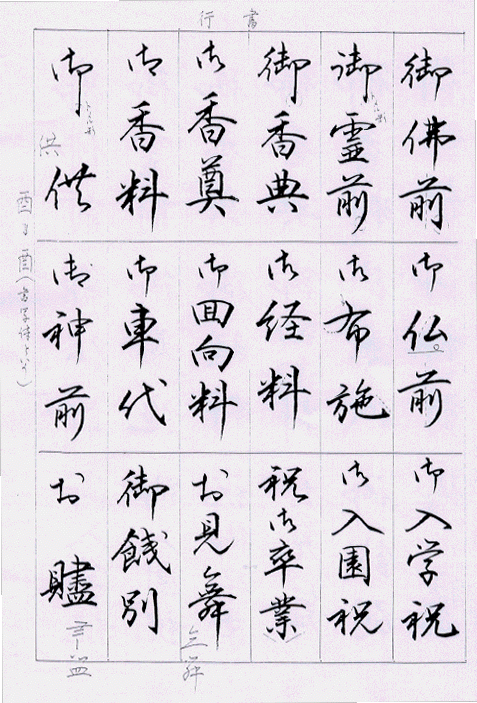 行書
御佛前
御霊前
御香典
御香奠
御香料
御供
御仏前
御布施
御経料
御回向料
御車代
御神前
御入学祝
御入園祝
祝御卒業
お見舞
御餞別
お贐
供